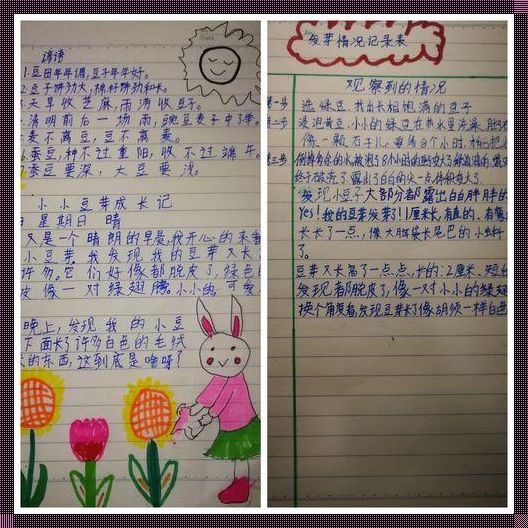 谚语
1.豆田年年调,豆子年年好。
2.豆子饼劲大,棉籽饼劲和长。
3.天旱收芝麻,雨涝收豆子。
4.清明前后一场雨,豌豆麦子中了举。
麦不离豆,豆不离麦。
6.蚕豆,种不过重阳,收不过端午。
蚕豆要深,大豆要浅。
小小豆芽成长记
日 星期日 晴
又是一个晴朗的早晨,我开心的来看
小豆芽,我发现我的豆芽又长
许多,它们好像都脱皮了,绿色的
皮像一对绿翅膀,小小的,可爱
晚上,发现我的小豆
下面长了许多白色的毛绒
的东西,这到底是啥呀?
发芽情况记录表
观察到的情况
第一步 选绿豆,找出长相饱满的豆子
第二步 浸泡黄豆,小小的绿豆在热水里洗澡
像一颗石子儿
第三步
终于破壳了,露出了白白的尖一点
发现小豆子大部分都露出白白胖胖的
Yes!我的豆芽发芽了!1厘米长,有直的,有弯
长长了一点,像大脑袋长尾巴的小蝌蚪
了。
豆芽又长高了一点点,长的:2厘米,短的
发现都脱皮了,像一对小小的绿翅
换个角度看,发现豆芽长了像胡须一样白色